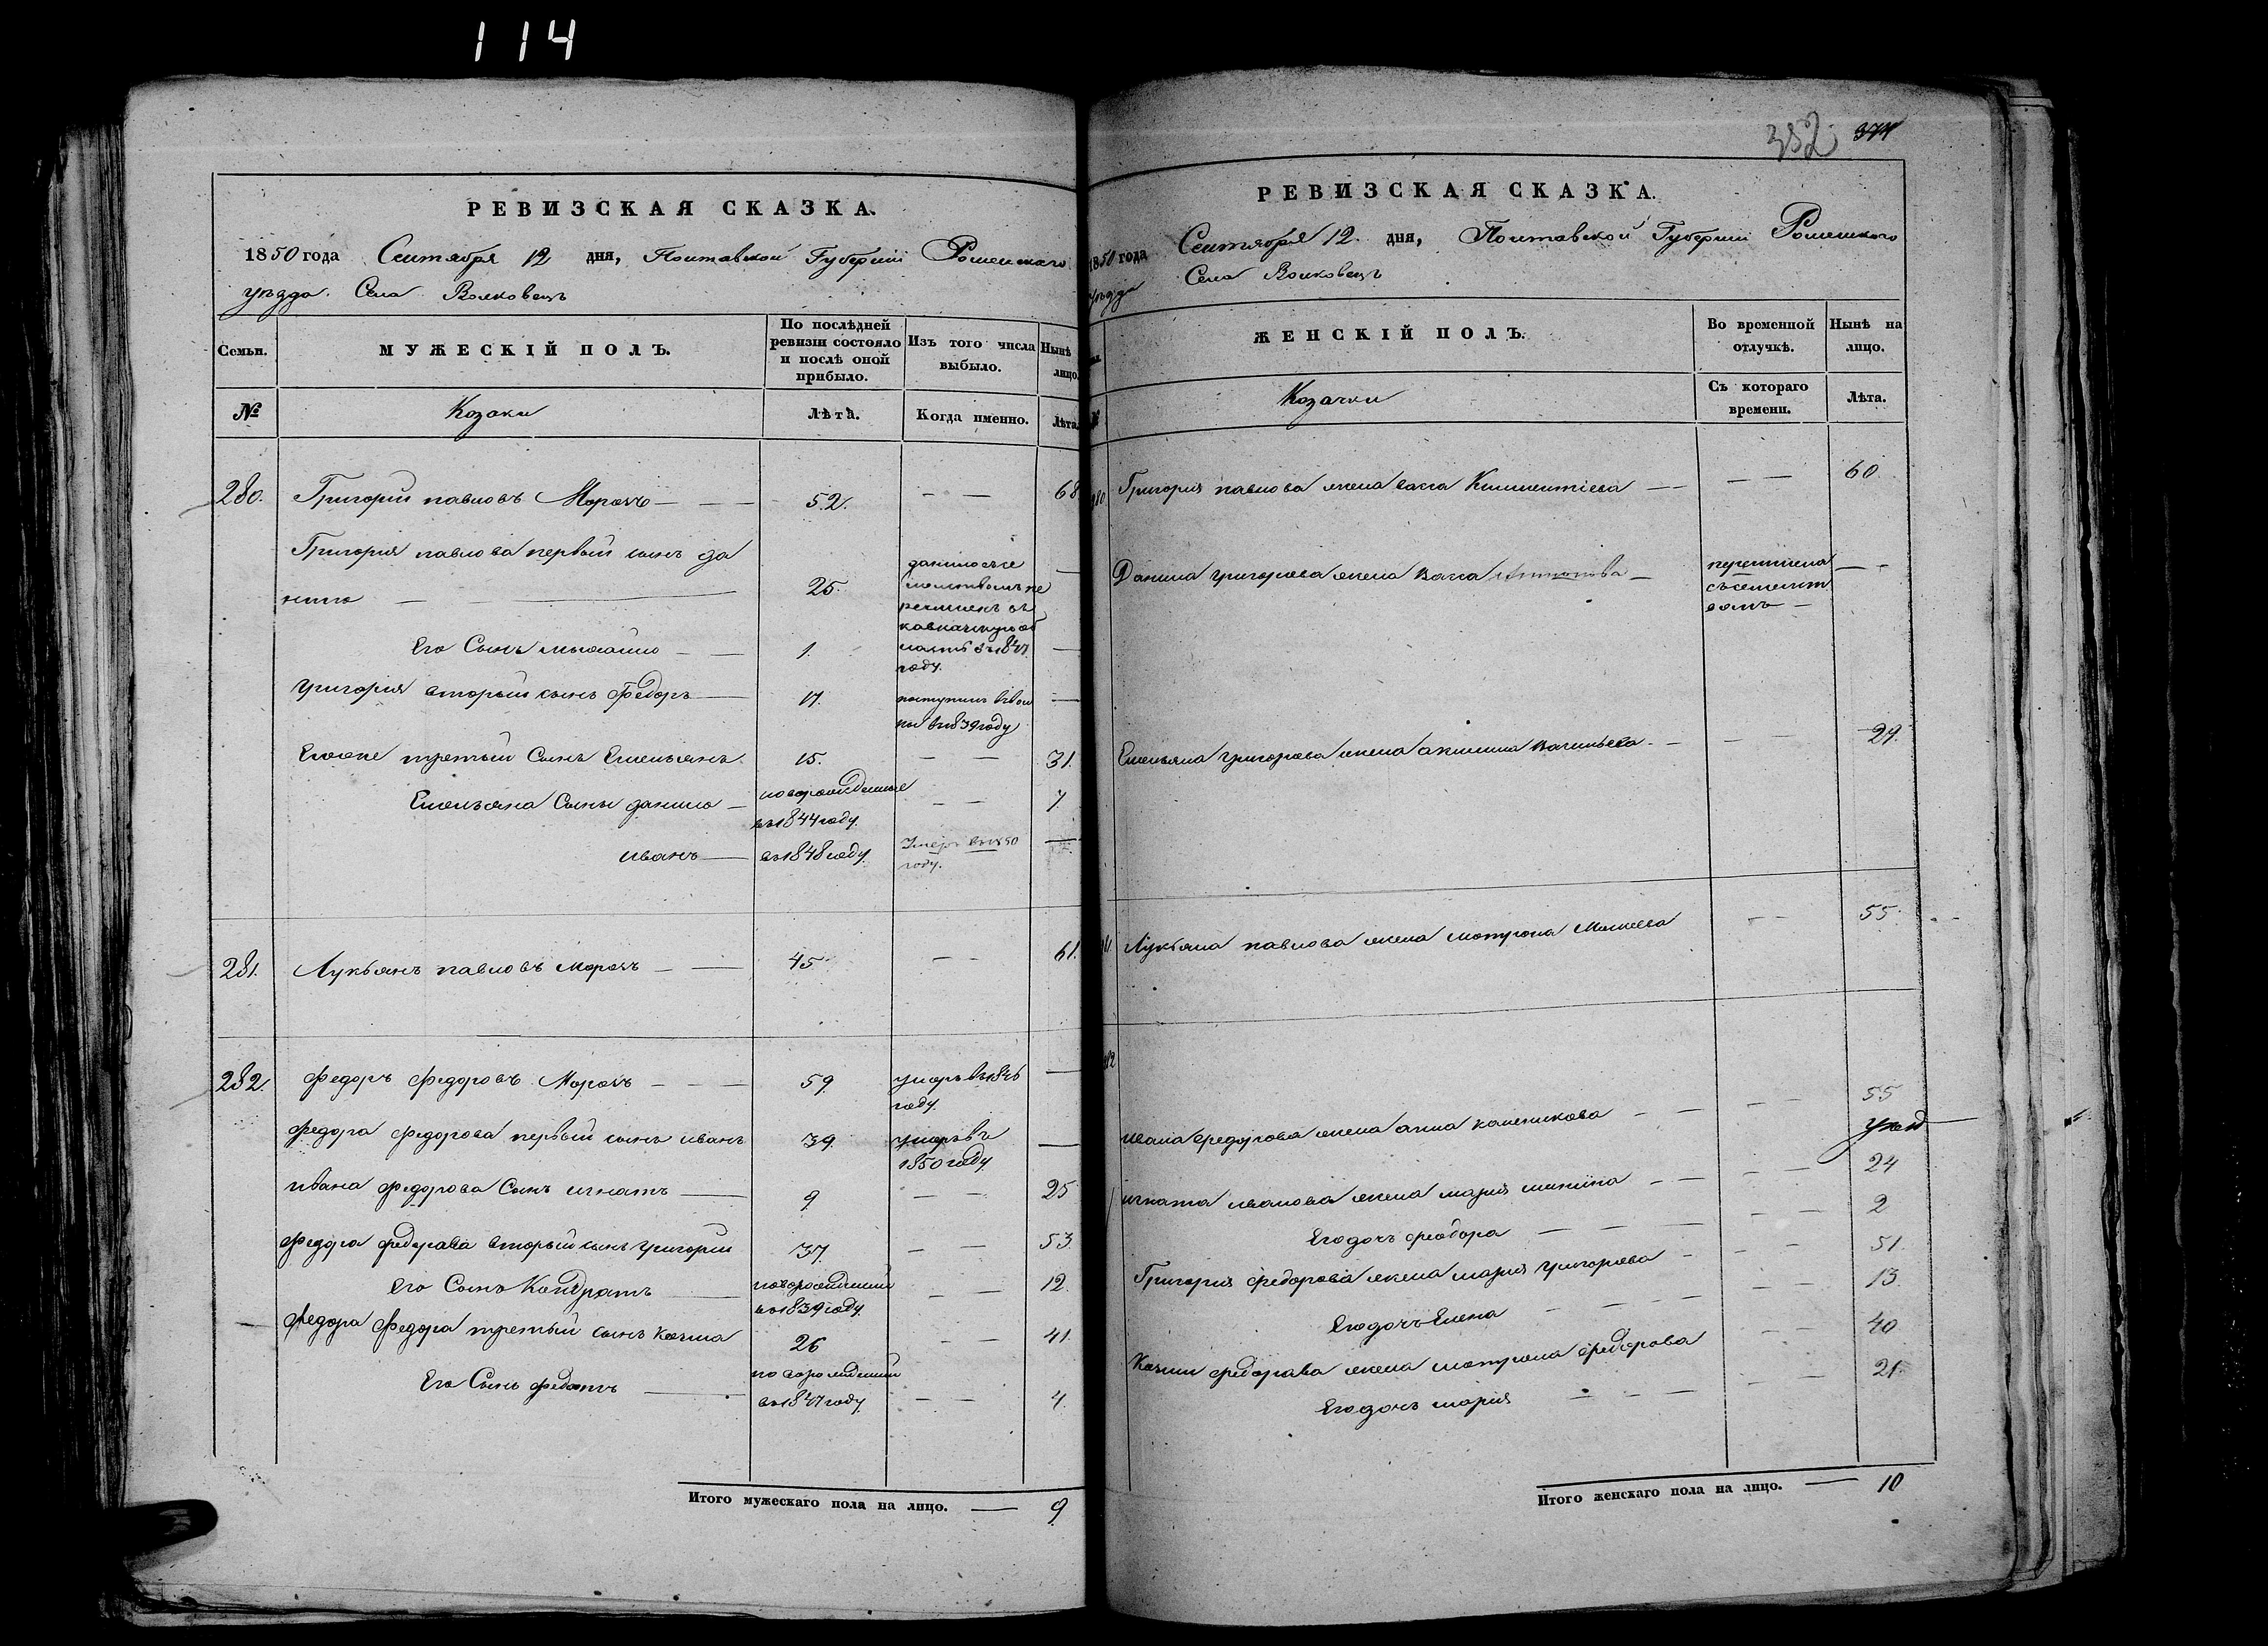 114
РЕВИЗСКАЯ СКАЗКА.
1850 года Сентября 12 дня, Полтавской Губерніи Роменскаго
уѣзда. Села Волковецъ
Семьи.
МУЖЕСКІЙ ПОЛЪ.
По послѣдней ревизіи состояло и послѣ оной прибыло.
Изъ того числа выбыло.
Нынѣ лицо.
№
Козаки
Лѣта.
Когда именно.
Лѣта.
280. Григорій павловъ Морохъ 52. 68
Григорія павлова первый сынъ да
нило 25.
данило съсе
мействомъ пе
речисленъ въ
кавказскую об
ласть въ 1847
году.
Его Сынъ михайло 1.
григорія вторый сынъ Федоръ 17. поступилъ
въ 1839 году
Егоже третый Сынъ Емельянъ. 15. 31.
Емельяна Сыны данило новорожденные 7
въ 1844 году.
иванъ въ 1848 году. Умеръ въ 1850
году.
281. Лукьянъ павловъ морохъ 45 61.
282. Федоръ Федоровъ Морохъ 59 умеръ въ 1846
году.
Федора Федорова первый сынъ иванъ 39. умеръ въ
1850 году
ивана Федорова Сынъ игнатъ 9 25
Федора Федорова вторый сынъ григорій 37. 53.
Его Сынъ Кондратъ новорожденный 12.
въ 1839 году.
Федора Федора третый сынъ козма 26 41.
Его Сынъ Федотъ новорожденный
въ 1847 году 4.
Итого мужескаго пола на лицо. 9
352 374
РЕВИЗСКАЯ СКАЗКА.
1850 года Сентября 12. дня, Полтавской Губерніи Роменскаго
уѣзда Села Волковецъ
ЖЕНСКІЙ ПОЛЪ.
Во временной отлучкѣ.
Нынѣ на лицо.
Козачки
Съ котораго времени.
Лѣта.
Григорія павлова жена васса Климентіева 60
Данила григорова жена васса Антонова
перечислена
съсемейст
вомъ
Емельяна григорова жена акилина васильева 29.
Лукьяна павлова жена мотрона Моисеева 55.
282
ивана Федорова жена анна 55
игната иванова жена марія 24
Егодочь Феодора 2
Григорія Федорова жена марія григорова 51.
Егодочь Елена 13.
Козми Федорова жена мотрона Федорова 40
Егодочь марія 21.
Итого женскаго пола на лицо. 10